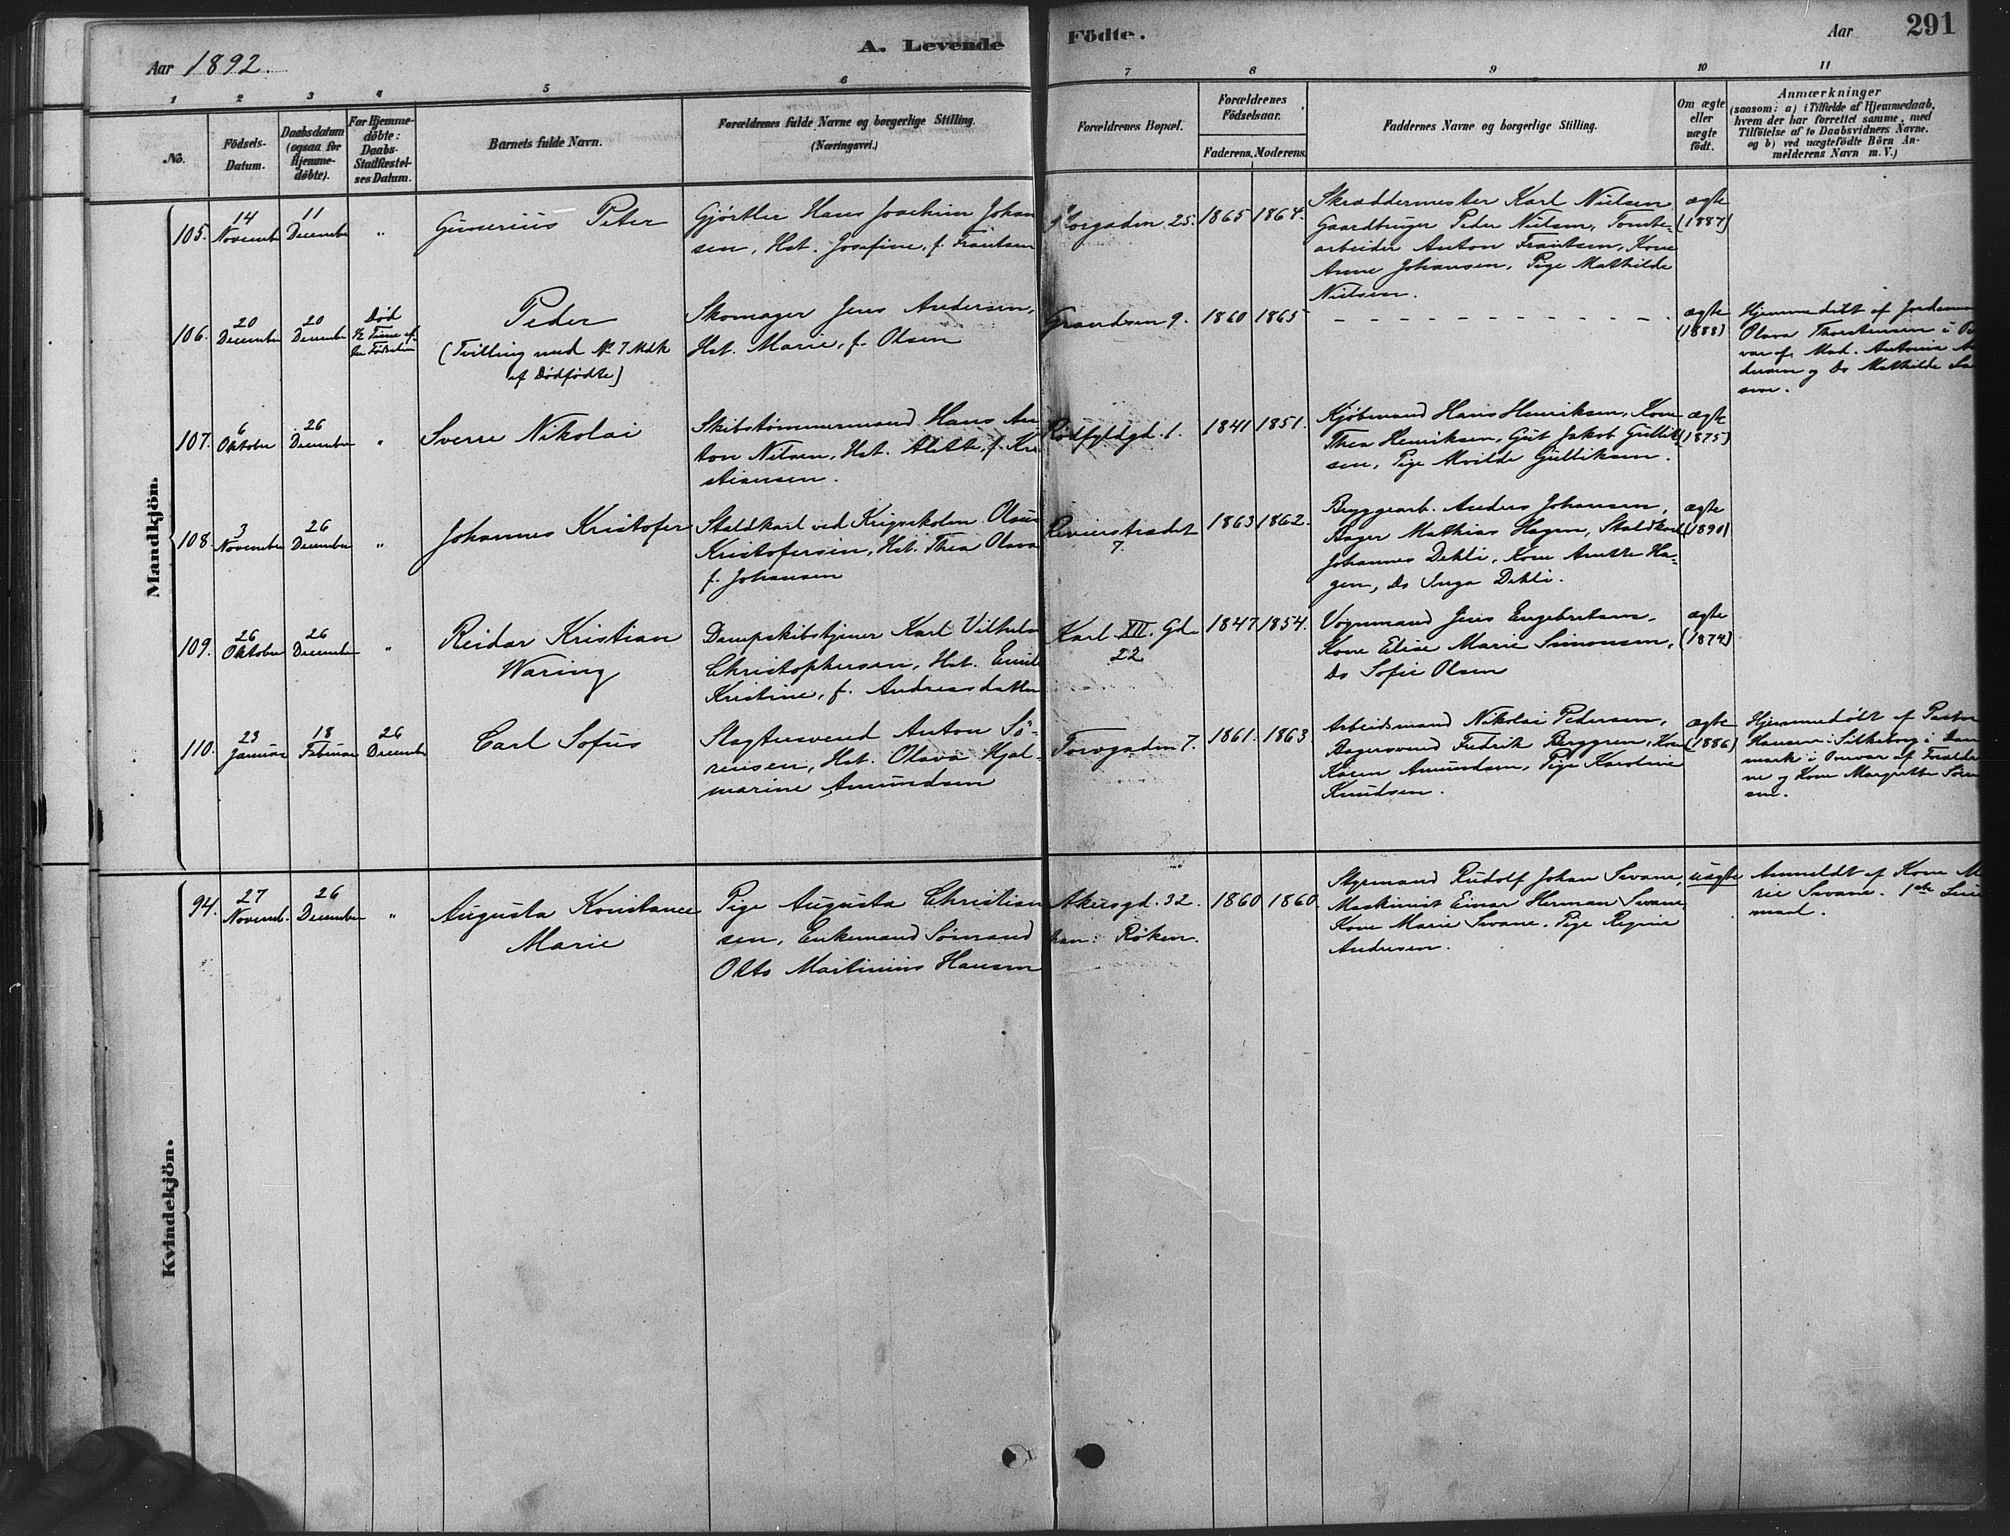 A. Levende Födte.
Aar 1892.
Aar 291
1 2 3 4 5 6 7 8 9 10 11
No.
Födsels-Datum.
Daabsdatum (ogsaa for Hjemmedøbte).
For Hjemmedöbte: Daabs-Stadfæstelses Datum.
Barnets fulde Navn.
Forældrenes fulde Navne og borgerlige Stilling. (Næringsvei.)
Forældrenes Bopæl.
Forældrenes Födselsaar.
Faderens. Moderens.
Faddernes Navne og borgerlige Stilling.
Om ægte eller uægte födt.
Anmærkninger
(saasom: a) i Tilfælde af Hjemmedaab,
hvem der har forrettet samme, med
Tilföielse af to Daabsvidners Navne.
og b) ved uægtefödte Börn An-
melderens Navn m. V.)
Mandkjön.
105. 14 Novembr 11 Decembr "
Gunerius Peter
Gjörtler Hans Joachim Johan
sen, Hst. Josefine, f. Frantsen
25. 1865 1864.
Skræddermester Karl Nielsen
Gaardbruger Peder Nielsen, Tomte-
arbeider Anton Frantsen, Kone
Anne Johansen, Pige Mathilde
Nielsen.
ægte
(1887)
106. 20 December 20 December
Död
½ Time ef-
ter Födselen
Peder
(Tvilling med No 7 Mdk
af Dödfödte)
Skomager Jens Andersen,
Hst. Marie, f. Olsen
Grændsen 9. 1860 1865
ægte
(1888)
Hjemmedöbt af Jordemor
Olava Thorstensen i
af Mad. Antonia
dersen og Do Mathilde
107. 6 Oktober 26 December "
Sverre Nikolai
Skibstømmermand Hans An-
ton Nilsen, Hst. Alette, f. Kri
stiansen.
Rödfyldgd. 1. 1841 1851.
Kjöbmand Hans Henriksen, Kone
Thea Henriksen, Gut Jakob Gullik
sen, Pige Mvilde Gulliksen.
ægte
(1875)
108. 3 November 26 December "
Johannes Kristofer
Staldkarl ved Krigsskolen Olaus
Kristofersen, Hst. Thea Olava
f. Johansen
Revierstrædet
7.
1863 1862.
Bryggearb. Anders Johansen,
Bager Mathias Hagen, Staldkarl
Johannes Dehli, Kone Anette Ha-
gen, Do Inga Dehli.
ægte
(1890)
109. 26 Oktober 26 December "
Reidar Kristian
Waring
Dampskibstjener Karl Vilhelm
Christophersen, Hst. Emilie
Kristine, f. Andreasdatter
Karl XII. Gd.
22
1847 1854.
Vognmand Jens Engebretsen,
Kone Elise Marie Simonsen,
Do Sofie Olsen
ægte
(1874)
110. 23 Januar 18 Februar 26 December
Carl Sofus
Slagtersvend Anton Sö-
rensen, Hst. Olava Hjal-
marine Amundsen
Torvgaden 7. 1861. 1863
Arbeidsmand Nikolai Pedersen,
Bagersvend Fredrik Berggren, Kone
Karen Amundsen, Pige Karoline
Knudsen.
ægte
(1886)
Hjemmedöbt af Pastor
Hansen i Silkeborg i Dan
mark i Overvær af Forældre
ne og Kone Margrethe Sören
sen.
Kvindekjön.
94. 27 Novemb. 26 December "
Augusta Konstance
Marie
Pige Augusta Christian
sen, Enkemand Sømand
Otto Martinius Hansen
Akersgd. 32.
han: Röken.
1860 1860
Styrmand Rudolf Johan Svane,
Maskinist Einar Herman Svane,
Kone Marie Svane, Pige Regine
Andresen.
uægte
Anmeldt af Kone Ma
rie Svane. 1ste Leier
maal.